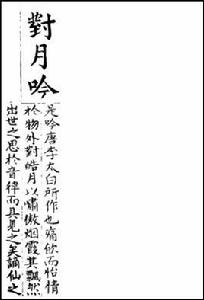 對月吟
是吟唐李太白所作也痛飲而怡情
於物外對皓月以嘯傲烟霞其飄然
出世之思於音律而具見之矣謫仙之